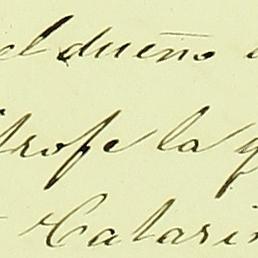 el dueño
trofe la
Catari